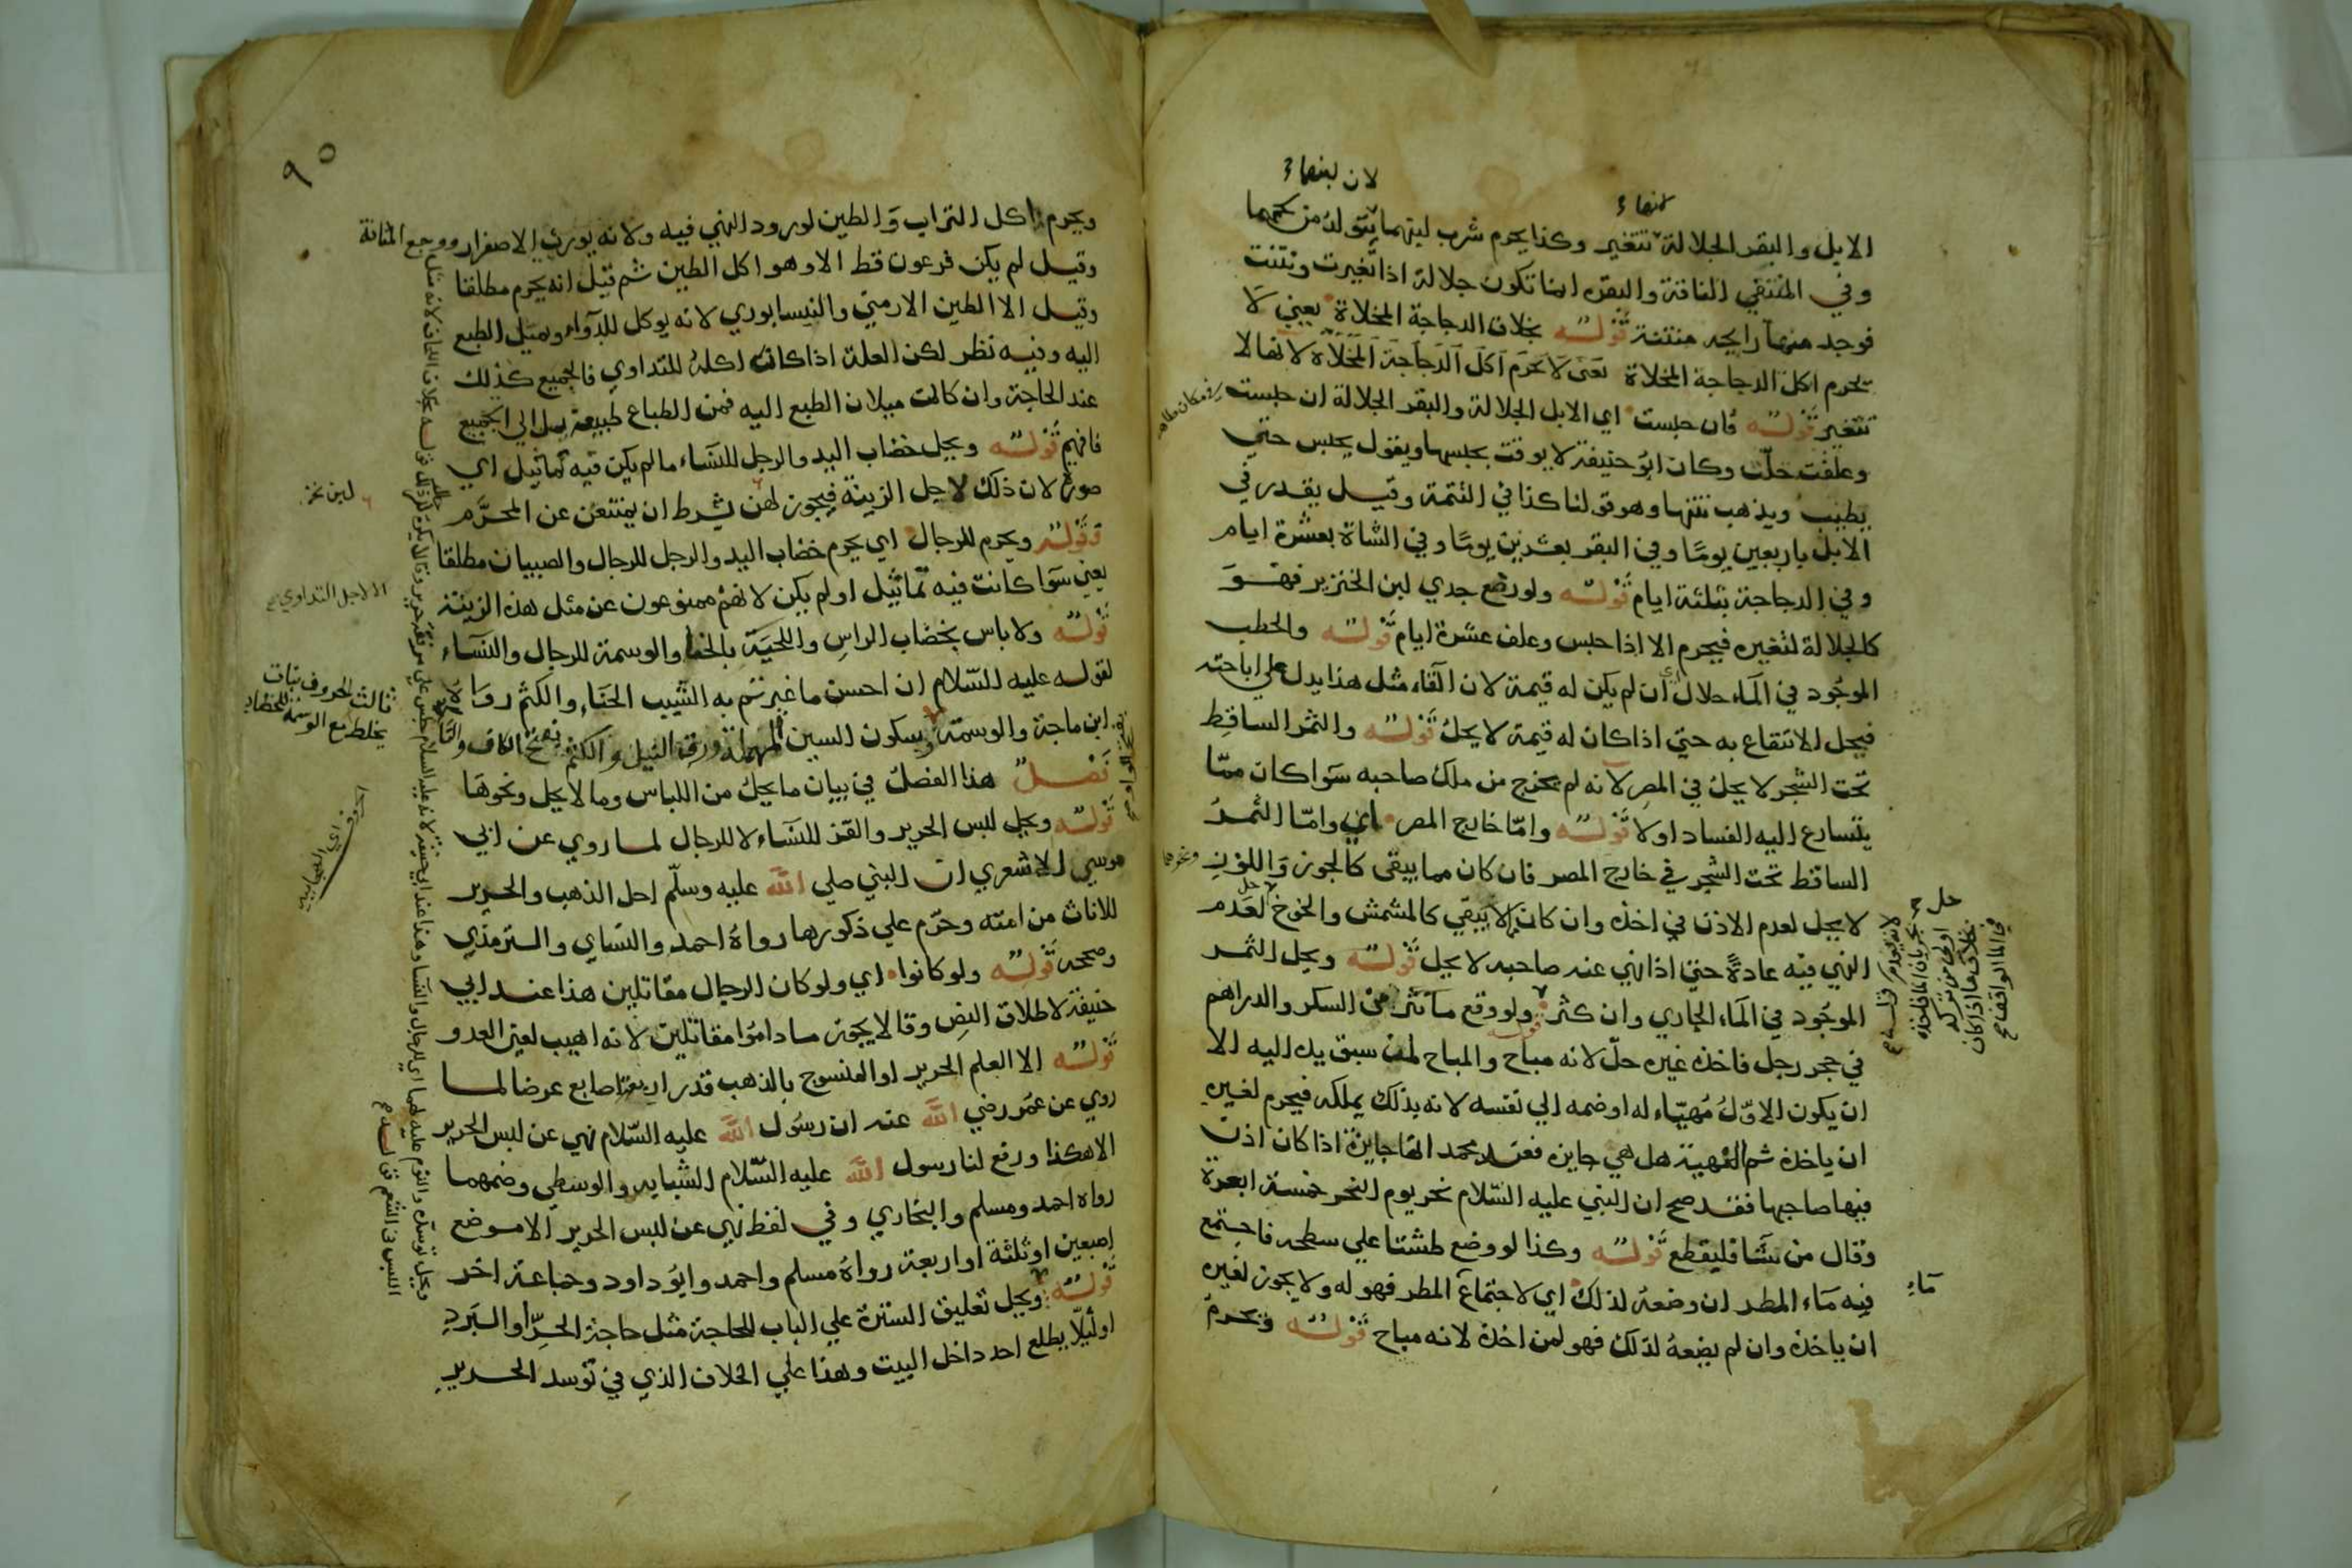 لان لبنهاء
لحمهاء
الابل والبقر الجلالة تتغير وكذا يحرم شرب لبنهما يتولد من لحمهما
وفي المنتقي الناقة والبقرة انما تكون جلالة اذا تغيرت ونتنت
فوجد منها رايحه منتنة قولـه بخلاف الدجاجة المخلاة يعني لا
يحرم اكل الدجاجة المخلاة يعني لا يحرم اكل الدجاجة المخلاة لانها لا
تتغير قولـه فان حبست اي الابل الجلالة والبقر الجلالة ان حبست
في مكان طاهر
وعلفت حلّت وكان ابو حنيفة لا يوقت بحبسها ويقول يحبس حتي
يطيب ويذهب نتنها وهو قولنا كذا في التتمة وقيـل يقدر في
الابل باربعين يومًا وفي البقر بعشرين يومًا وفي الشاة بعشرة ايام
وفي الدجاجة بثلثة ايام قولـه ولو رضع جدي لبن الخنزير فهـو
كالجلالة لتغيره فيحرم الا اذا حبس وعلف عشرة ايام قولـه والحطب
الموجود في الماء حلال ان لم يكن له قيمة لان القاء مثل هذا يدل علي اباحته
فيحل الانتفاع به حتي اذا كان له قيمة لا يحل قولـه والثمر الساقط
تحت الشجر لا يحل في المصر لانه لم يخرج من ملك صاحبه سوا كان ممّا
يتسارع اليه الفساد اولا قولـه وامّا خارج المصر اي وامّا الثمرُ
الساقط تحت الشجر في خارج المصر فان كان مما يبقي كالجوز واللوز
وغيرهما
لا يحل لعدم الاذن في اخذه وان كان لا يبقي كالمشمش والخوخ لعدم
حل
النهي فيه عادةً حتي اذا نهي عنه صاحبه لا يحل قولـه ويحل الثمـر
الموجود في الماء الجاري وان كثر ولو وقع ما نثر من السكر والدراهم
قولـه
في حجر رجل فاخذه غيره حلّ لانه مباح والمباح لمن سبق يده اليه الا
ان يكون الاوّلُ مُهيّاء له او ضمه الي نفسه لانه بذلك يملكه فيحرم لغيره
ان ياخذه ثم النهبة هل هي جايزه فعند محمد انها جايزة اذا كان اذن
فيها صاحبها فقد صح ان النبي عليه السّلام نحر يوم النحر خمسة ابعرة
وقال من شا فليقطع قولـه وكذا لو وضع طشتا علي سطحه فاجتمع
فيه ماء المطـر ان وضعهُ لذلك اي لاجتماع المطر فهو له ولا يجوز لغيره
ماء
ان ياخذه وان لم يضعهُ لذلك فهو لمن اخذه لانه مباح قولـه ويحرم
حل
٩٥
ويحرم اكل التراب والطين لورود النهي فيه ولانه يورث الاصفرار ووجع المثانة
وقيـل لم يكن فرعون قط الا وهو اكل الطين ثم قيل انه يحرم مطلقا
وقيـل الا الطين الارمني والنيسابوري لانه يوكل للدّواء ويميل الطبع
اليه وفيـه نظر لكن العلة اذا كانت اكلهُ للتداوي فالجميع كذلك
عند الحاجة وان كانت ميلان الطبع اليه فمن الطباع طبيعة يميل الي الجميع
فافهم قولـه ويحل خضاب اليد والرجل للنساء ما لم يكن فيه تماثيل اي
صورة لان ذلك لاجل الزينة فيجوز لهن بشرط ان يمتنعن عن المحرّم
قولـه ويحرم للرجال اي يحرم خضاب اليد والرجل للرجال والصبيان مطلقا
الا لاجل التداوي
يعني سوا كانت فيه تماثيل او لم يكن لانهم ممنوعون عن مثل هذه الزينة
قولـه ولا باس بخضاب الراس واللحية بالحنا والوسمة للرجال والنساء
لقوله عليه السّلام ان احسن ما غيرتم به الشيب الحناء والكتم رواه
ابن ماجة والوسمة وبسكون السين المهملة ورق النيل والكتم بفتح الكاف والتاء
ثالث الحروف نبات
يخلط مع الوسمة للخضاب
فصـل هذا الفصل في بيان ما يحل من اللباس وما لا يحل ونحوها
قولـه ويحل لبس الحرير والقز للنساء لا للرجال لما روي عن ابي
موسي الاشعري ان النبي صلي الله عليه وسلّم احل الذهب والحرير
للاناث من امته وحرّم علي ذكورها رواهُ احمد والنساي والترمذي
وصححه قولـه ولو كانوا اي ولو كان الرجال مقاتلين هذا عند ابي
حنيفة لاطلاق النص وقالا يجوز ما داموا مقاتلين لانه اهيب لعين العدو
قولـه الا العلم الحرير او المنسوج بالذهب قدر اربعة اصابع عرضا لمـا
روي عن عمر رضي الله عنه ان رسول الله عليه السّلام نهي عن لبس الحرير
الا هكذا ورفع لنا رسول الله عليه السّلام السبابه والوسطي وضمهما
رواه احمد ومسلم والبخاري وفي لفظ نهي عن لبس الحرير الا موضع
اصبعين او ثلثة او اربعة رواهُ مسلم واحمد وابو داود وجماعة اخر
قولـه ويحل تعليق السترة علي الباب للحاجة مثل حاجة الحرّ او البَردِ
او ليلّا يطلع احد داخل البيت وهذا علي الخلاف الذي في توسد الحرير